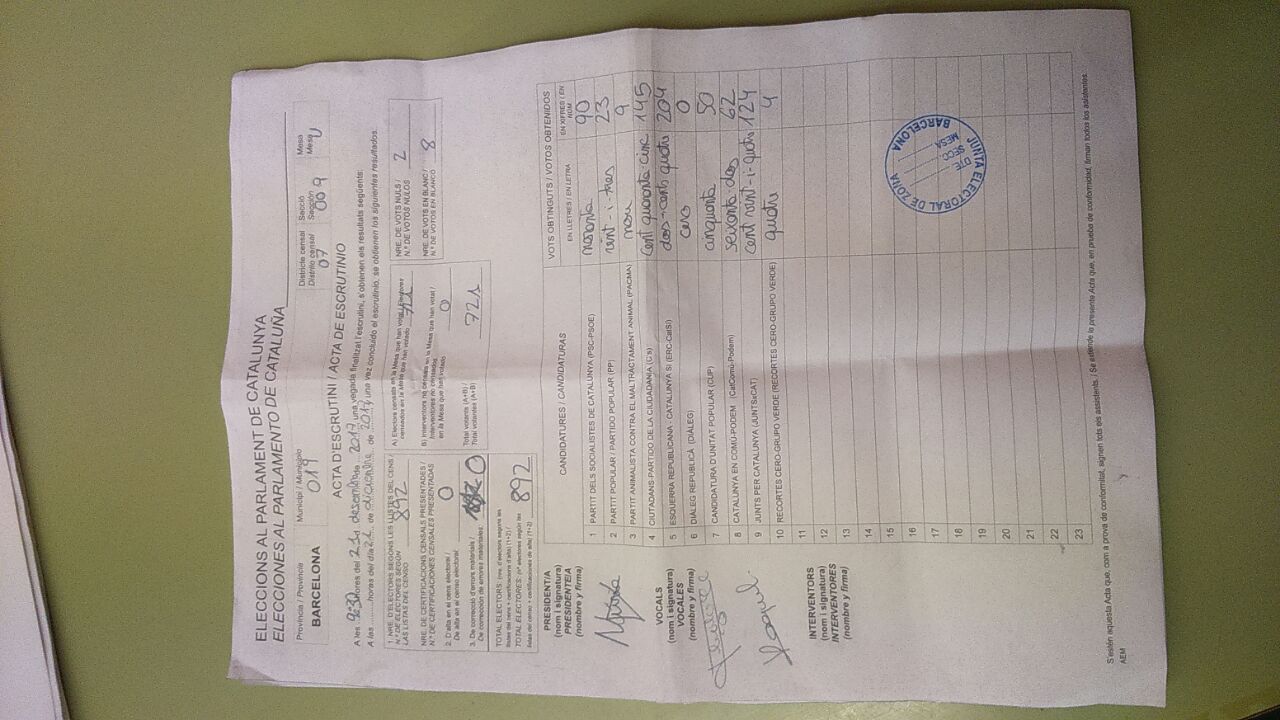 ELECCIONS AL PARLAMENT DE CATALUNYA
ELECCIONES AL PARLAMENTO DE CATALUÑA
Província / Provincia
BARCELONA
Municipi / Municipio
019
Districte censal
Distrito censal
07
Secció
Sección
009
Mesa
Mesa
U
ACTA D'ESCRUTINI / ACTA DE ESCRUTINIO
A les 9:30 hores del 21 de desembre de 2017 una vegada finalitzat l'escrutini, s'obtenen els resultats següents:
A las ......... horas del día 21 de diciembre de 2017 una vez concluido el escrutinio, se obtienen los siguientes resultados.
1. NRE. D'ELECTORS SEGONS LES LLISTES DEL CENS /
N.º DE ELECTORES SEGÚN
LAS LISTAS DEL CENSO
892
NRE. DE CERTIFICACIONS CENSALS PRESENTADES /
N.º DE CERTIFICACIONES CENSALES PRESENTADAS
2. D'alta en el cens electoral /
De alta en el censo electoral
0
3. De correcció d'errors materials /
De corrección de errores materiales
0
TOTAL ELECTORS: (nre. d'electors segons les
llistes del cens + certificacions d'alta) (1+2) /
TOTAL ELECTORES: (nº electores según las
listas del censo + certificaciones de alta) (1+2)
892
A) Electors censats en la Mesa que han votat / Electores
censados en la Mesa que han votado
721
B) Interventors no censats en la Mesa que han votat /
Interventores no censados
en la Mesa que han votado
0
Total votants (A+B) /
Total votantes (A+B)
721
NRE. DE VOTS NULS /
N.º DE VOTOS NULOS
2
NRE. DE VOTS EN BLANC /
N.º DE VOTOS EN BLANCO
8
PRESIDENTIA
(nom i signatura)
PRESIDENTE/A
(nombre y firma)
VOCALS
(nom i signatura)
VOCALES
(nombre y firma)
INTERVENTORS
(nom i signatura)
INTERVENTORES
(nombre y firma)
CANDIDATURES / CANDIDATURAS
VOTS OBTINGUTS / VOTOS OBTENIDOS
EN LLETRES / EN LETRA
EN XIFRES / EN NÚM
1 PARTIT DELS SOCIALISTES DE CATALUNYA (PSC-PSOE) noranta 90
2 PARTIT POPULAR / PARTIDO POPULAR (PP) vint-i-tres 23
3 PARTIT ANIMALISTA CONTRA EL MALTRACTAMENT ANIMAL (PACMA) nou 9
4 CIUTADANS-PARTIDO DE LA CIUDADANÍA (C's) cent quaranta cinc 145
5 ESQUERRA REPUBLICANA - CATALUNYA SÍ (ERC-CatSí) dos-cents quatre 204
6 DIÀLEG REPUBLICÀ (DIÀLEG) cero 0
7 CANDIDATURA D'UNITAT POPULAR (CUP) cinquanta 50
8 CATALUNYA EN COMÚ-PODEM (CatComú-Podem) seixanta-dos 62
9 JUNTS PER CATALUNYA (JUNTSxCAT) cent vint-i-quatre 124
10 RECORTES CERO-GRUPO VERDE (RECORTES CERO-GRUPO VERDE) quatre 4
11
12
13
14
15
16
17
18
19
20
21
22
23
JUNTA ELECTORAL DE ZONA
BARCELONA
DTE.
SECC.
MESA
S'estén aquesta Acta que, com a prova de conformitat, signen tots els assistents. / Se extiende la presente Acta que, en prueba de conformidad, firman todos los asistentes.
AEM